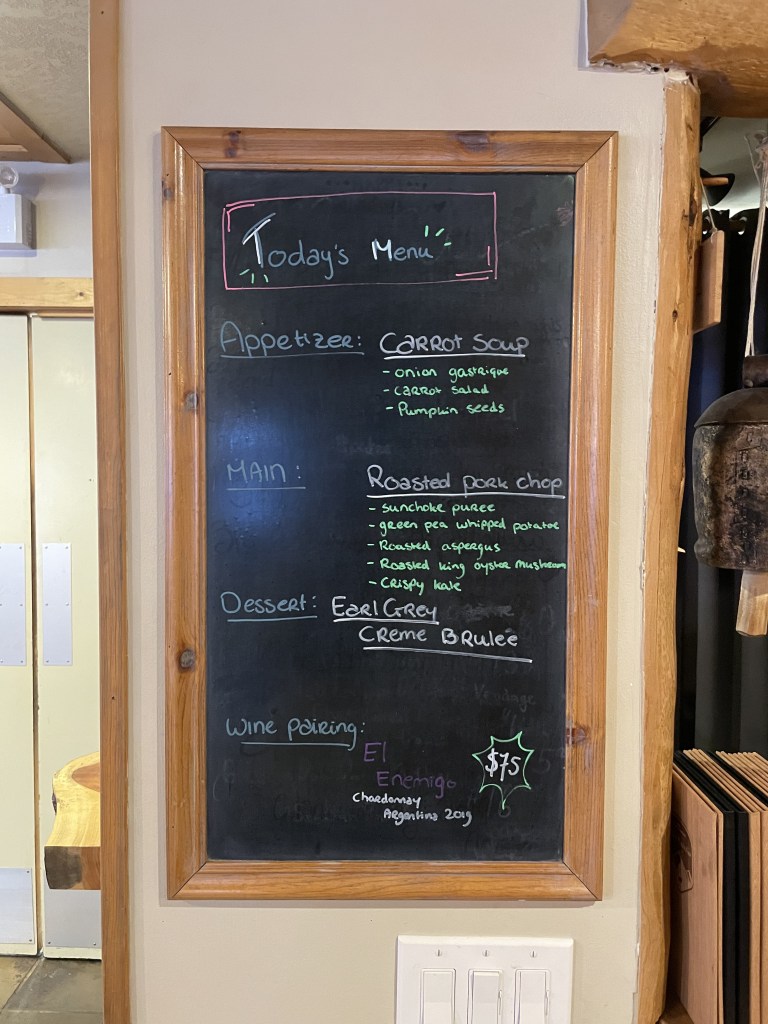 Today's Menu
Appetizer: Carrot Soup
- onion gastrique
- carrot salad
- Pumpkin seeds
MAIN: Roasted pork chop
- sunchoke puree
- green pea whipped potatoe
- Roasted aspergus
- Roasted king oyster mushroom
- crispy kale
Dessert: Earl Grey
Creme Brulee
Wine pairing:
El
Enemigo
Chardonnay
Argentina 2019
$75